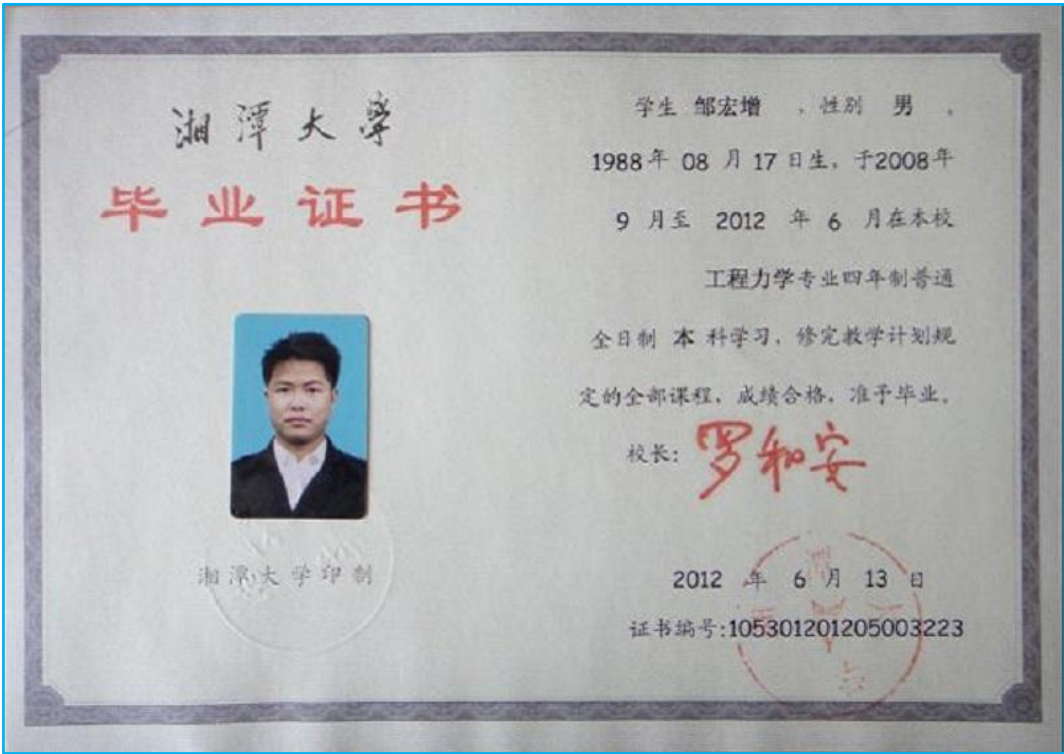 湘潭大学
毕业证书
湘潭大学印制
学生 邹宏增 ,性别 男 ,
1988年 08 月 17 日生,于2008年
9 月至 2012 年 6 月在本校
工程力学专业四年制普通
全日制 本 科学习,修完教学计划规
定的全部课程,成绩合格,准予毕业。
校长: 罗和安
2012 年 6 月 13 日
证书编号:105301201205003223